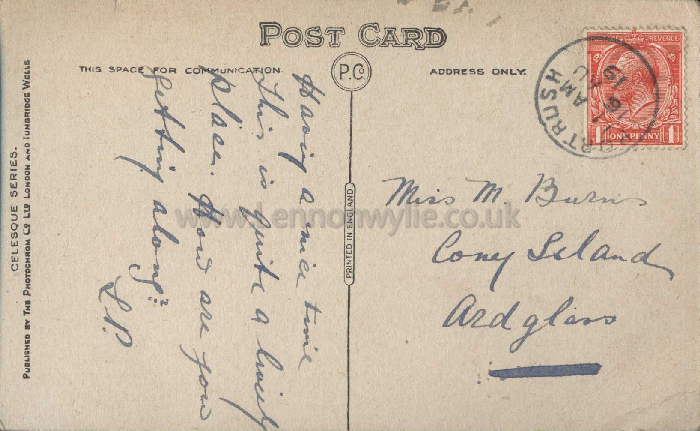 POST CARD
THIS SPACE FOR COMMUNICATION
P.C
ADDRESS ONLY.
Having a nice time
This is quite a lively
place. How are you
getting along?
L.P.
Miss M Burns
Coney Island
Ardglass
REVENUE
1 ONE PENNY 1
RTRUSH
AM
16 AU
19
PRINTED IN ENGLAND
CELESQUE SERIES.
PUBLISHED BY THE PHOTOCHROM CO LTD LONDON AND TUNBRIDGE WELLS
www.Lennonwylie.co.uk